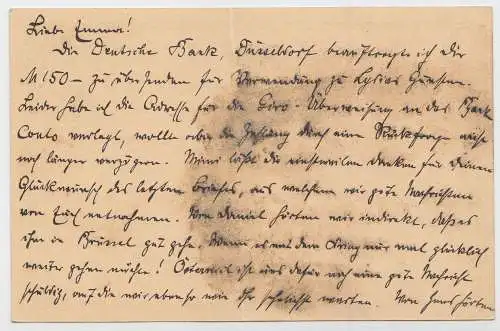 Liebe Emma!
Die Deutsche Bank, Düsseldorf beauftragte ich dir
M 150 – zu übersenden für Verwendung zu Gunsten.
Leider habe ich die Adresse für die Giro-Überweisung an das Bank
Conto verlegt, wollte aber die Zahlung durch eine Rückfrage nicht
noch länger verzögern. Mimi läßt dir einstweilen danken für deinen
Glückwunsch des letzten Briefes, aus welchem wir gute Nachrichten
von Euch entnahmen. Von Daniel hörten wir indirekt, daß es
ihm in Brüssel gut gehe. Wenn es mit dem Krieg nur mal glücklich
weiter gehen möchte! ist uns dafür noch eine gute Nachricht
schuldig, auf die wir ebenso wie Ihr warten. Von Hans hörten